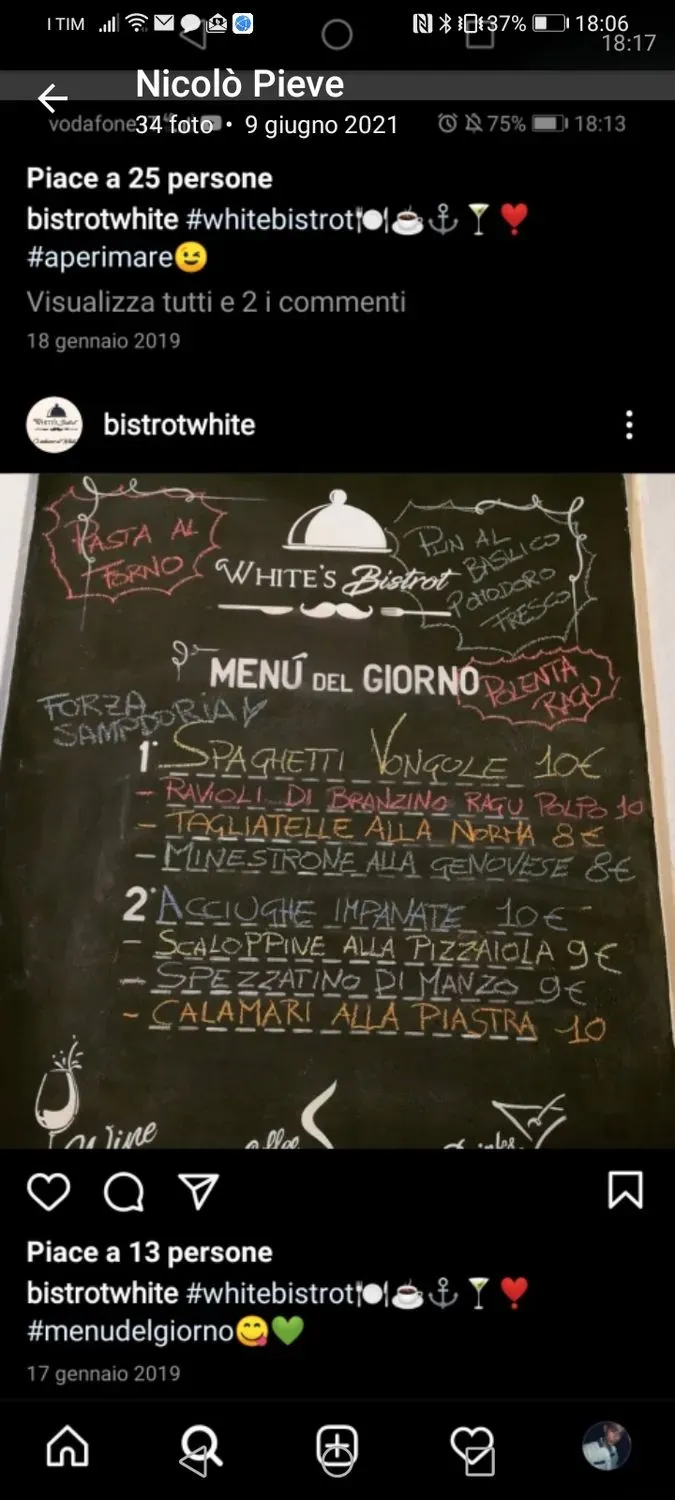 I TIM 37% 18:06
18:17
Nicolò Pieve
vodafone 75% 18:13
34 foto • 9 giugno 2021
Piace a 25 persone
bistrotwhite #whitebistrot🍽️☕⚓🍸❣️
#aperimare😉
Visualizza tutti e 2 i commenti
18 gennaio 2019
bistrotwhite
PASTA AL
FORNO
WHITE'S Bistrot
PLIN AL
BASILICO
POMODORO
FRESCO
MENÚ DEL GIORNO
POLENTA
RAGU
FORZA
SAMPDORIA
1° SPAGHETTI VONGOLE 10€
- RAVIOLI DI BRANZINO RAGU POLPO 10
- TAGLIATELLE ALLA NORMA 8€
- MINESTRONE ALLA GENOVESE 8€
2° ACCIUGHE IMPANATE 10€
- SCALOPPINE ALLA PIZZAIOLA 9€
- SPEZZATINO DI MANZO 9€
- CALAMARI ALLA PIASTRA 10
Wine
Piace a 13 persone
bistrotwhite #whitebistrot🍽️☕⚓🍸❣️
#menudelgiorno😋💚
17 gennaio 2019